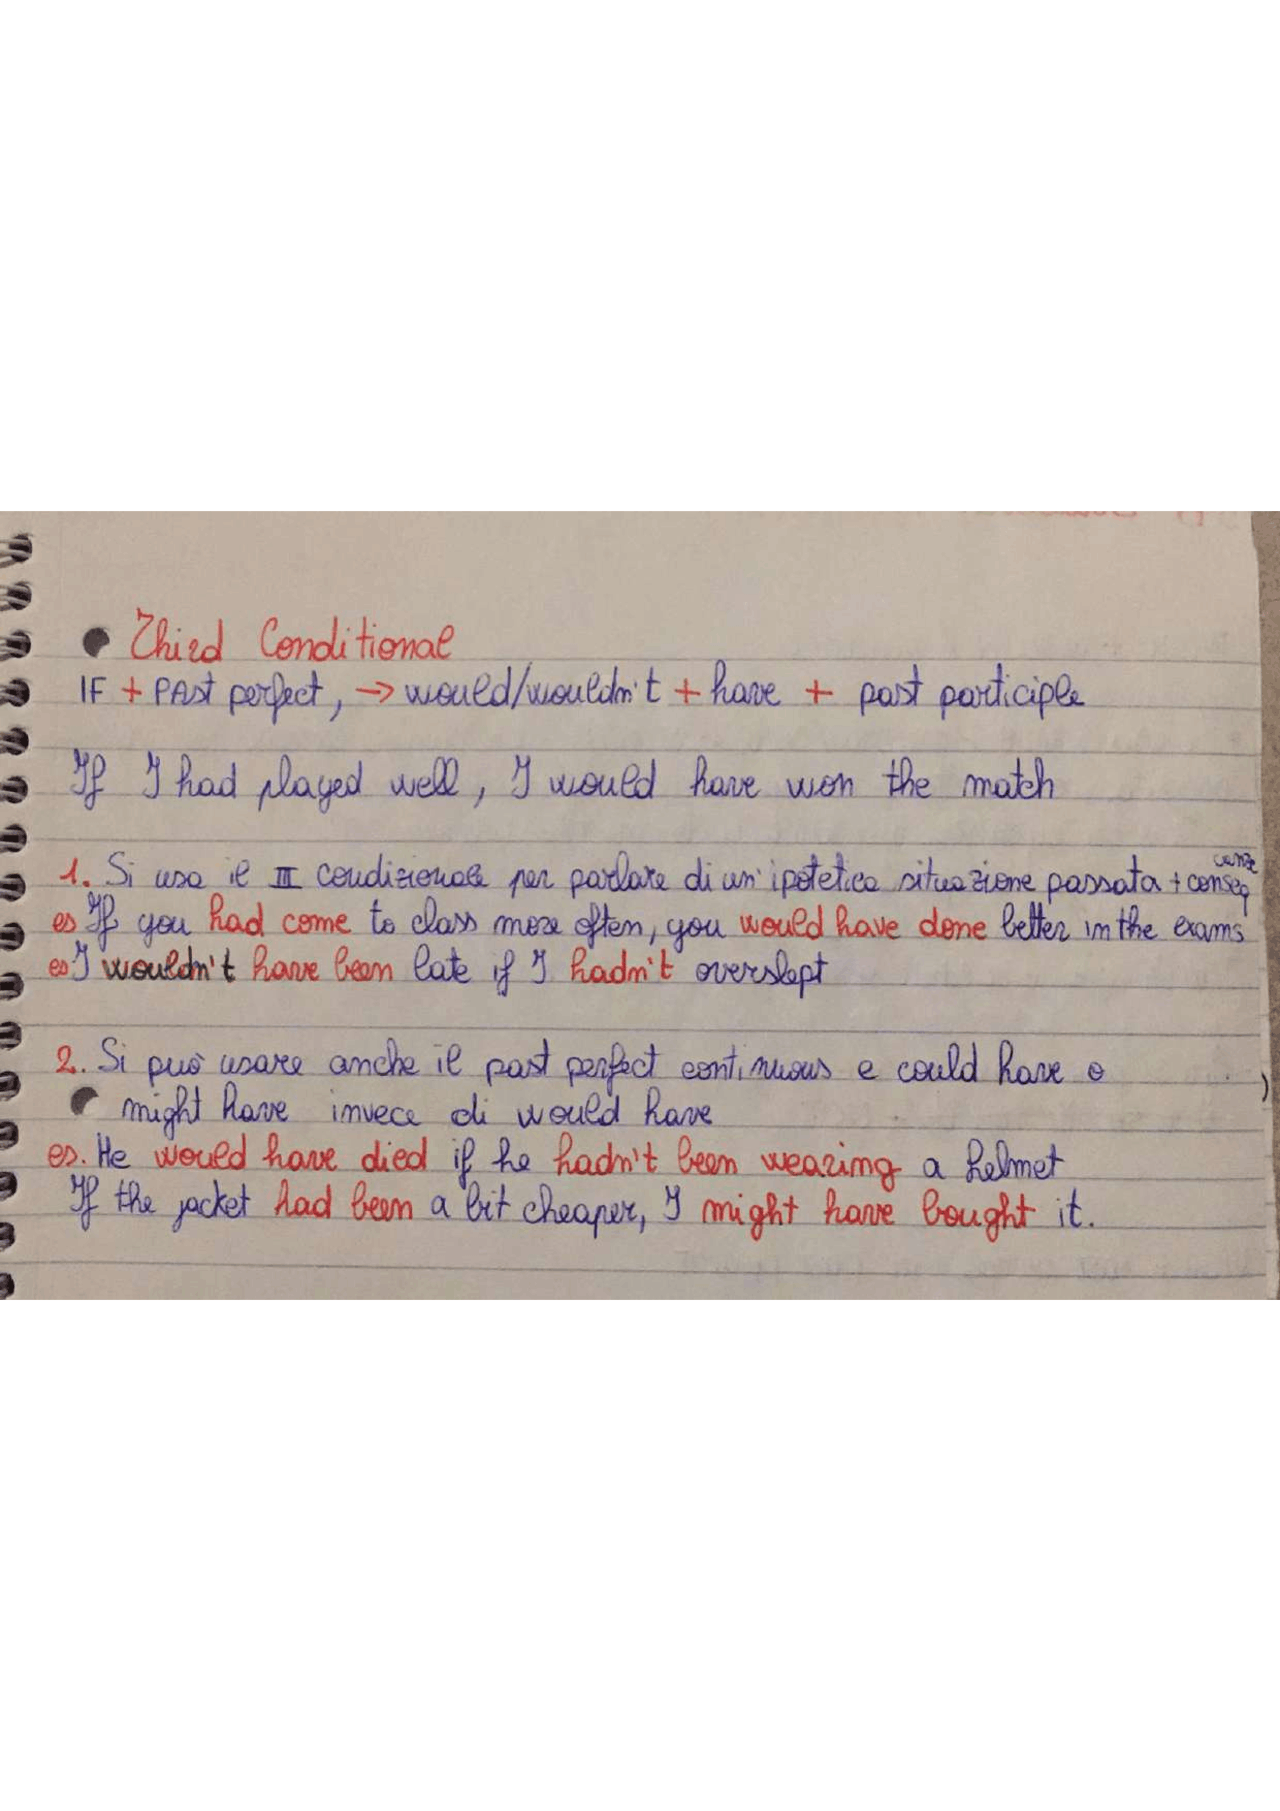 • Third Conditional
IF + PAst perfect, → would/wouldn't + have + past participle
If I had played well, I would have won the match
1. Si usa il III condizionale per parlare di un'ipotetica situazione passata + conseq
uenze
es If you had come to class more often, you would have done better in the exams
es I wouldn't have been late if I hadn't overslept
2. Si può usare anche il past perfect continuous e could have o
might have invece di would have
es. He would have died if he hadn't been wearing a helmet
If the jacket had been a bit cheaper, I might have bought it.